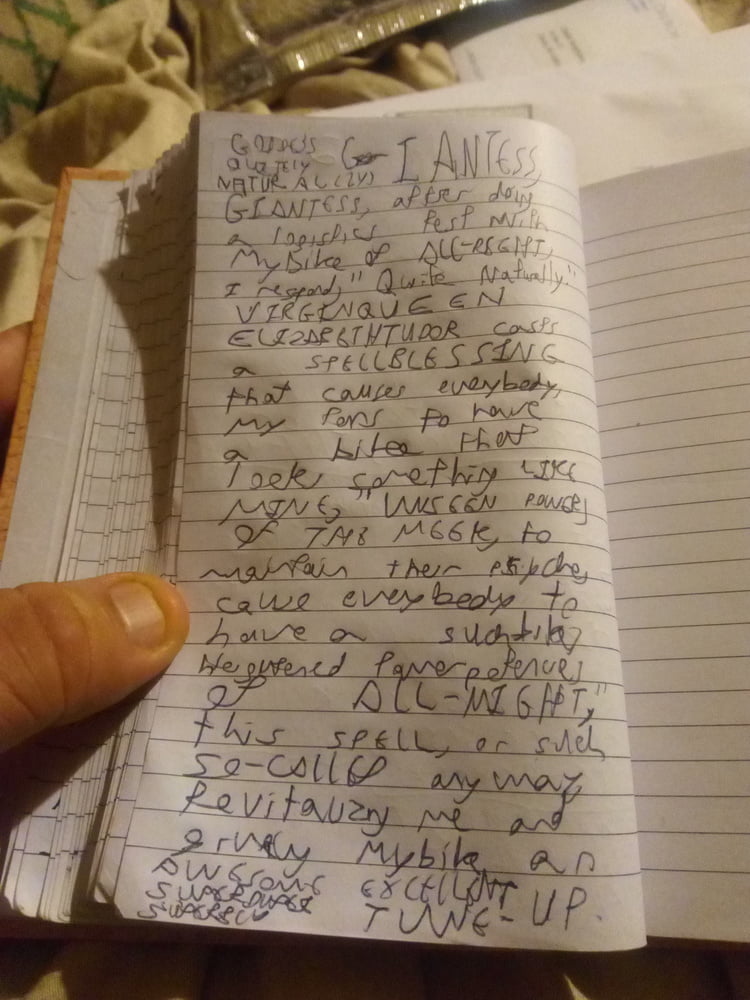 GODDESS
QUITELY G I ANTESS,
NATURAL(LY)
GIANTESS, after doing
a logistics test with
My Bike of ALL-RIGHT,
I respond, "Quite Naturally."
VIRGINQUEEN
ELIZABETHTUDOR casts
a SPELLBLESSING
that causes everybody,
My fans to have
a bike that
looks something LIKE
MINE, "UNSEEN POWERS
OF THE MEEK, to
maintain their psyche,
cause everybody to
have a suchlike
of ALL-MIGHT,"
this SPELL, or such
SO-CALLED anyway
Revitalizing me and
giving Mybike an
AWESOME EXCELLENT
SUPERDUPER
TUNE-UP.